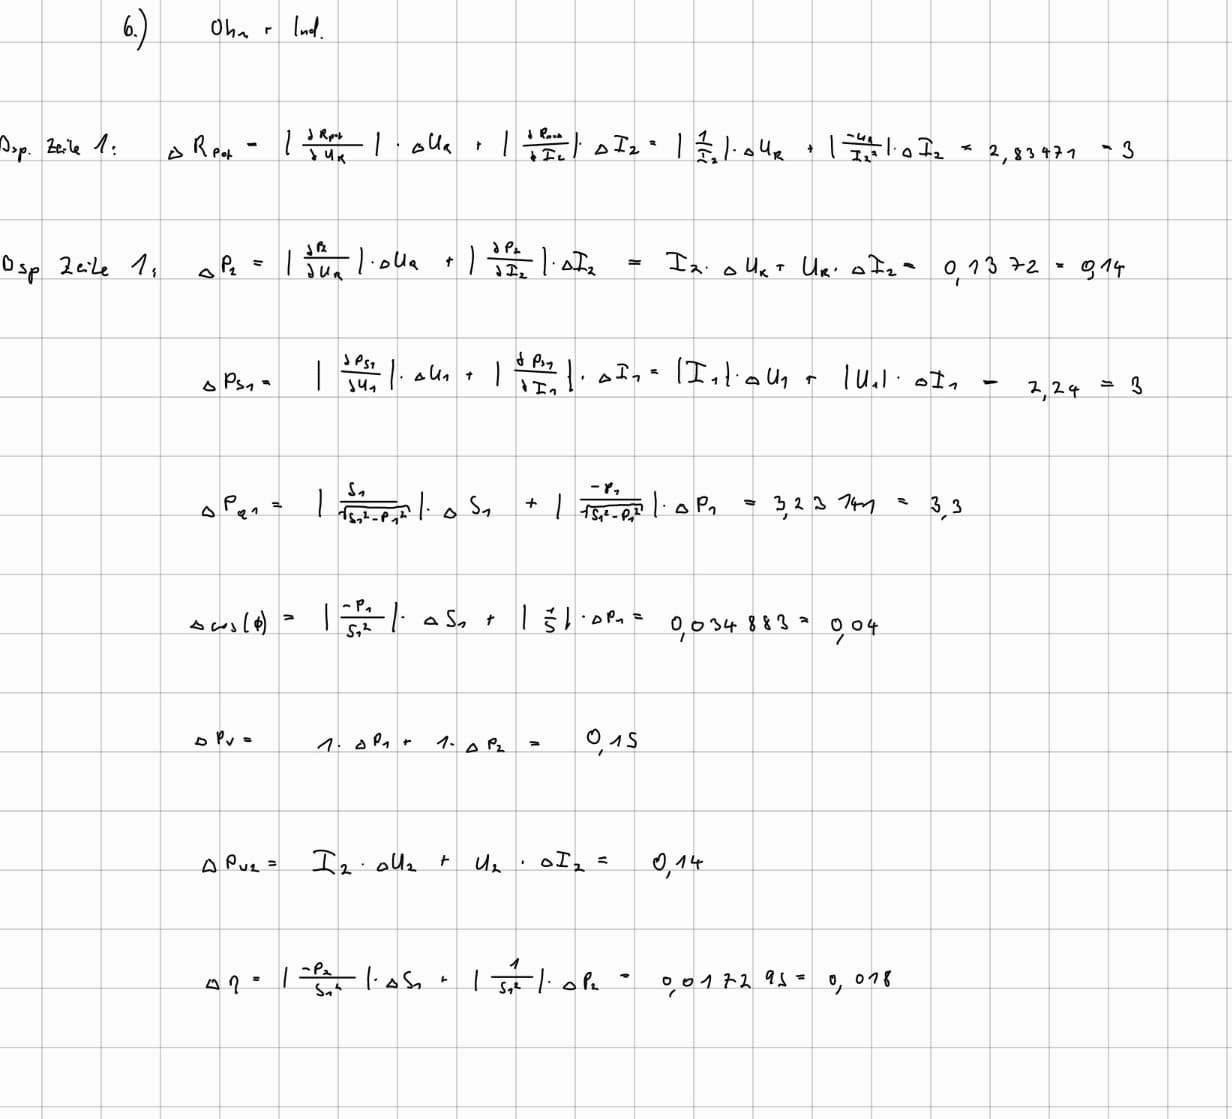 6.) Ohm + Ind.
Bsp. Zeile 1: Δ R_Pot = | ∂R_Pot / ∂U_R | · ΔU_R + | ∂R_Pot / ∂I_2 | · ΔI_2 = | 1 / I_2 | · ΔU_R + | -U_R / I_2² | · ΔI_2 = 2,83471 = 3
Bsp Zeile 1: ΔP_2 = | ∂P_2 / ∂U_R | · ΔU_R + | ∂P_2 / ∂I_2 | · ΔI_2 = I_2 · ΔU_R + U_R · ΔI_2 = 0,1372 = 0,14
ΔP_S1 = | ∂P_S1 / ∂U_1 | · ΔU_1 + | ∂P_S1 / ∂I_1 | · ΔI_1 = |I_1| · ΔU_1 + |U_1| · ΔI_1 = 2,24 = 3
ΔP_Q1 = | S_1 / √(S_1² - P_1²) | · ΔS_1 + | -P_1 / √(S_1² - P_1²) | · ΔP_1 = 3,23141 = 3,3
Δcos(ϕ) = | -P_1 / S_1² | · ΔS_1 + | 1 / S | · ΔP_1 = 0,034883 = 0,04
ΔP_V = 1 · ΔP_1 + 1 · ΔP_2 = 0,15
ΔP_U2 = I_2 · ΔU_2 + U_2 · ΔI_2 = 0,14
Δη = | -P_2 / S_1² | · ΔS_1 + | 1 / S_1² | · ΔP_2 = 0,017295 = 0,018